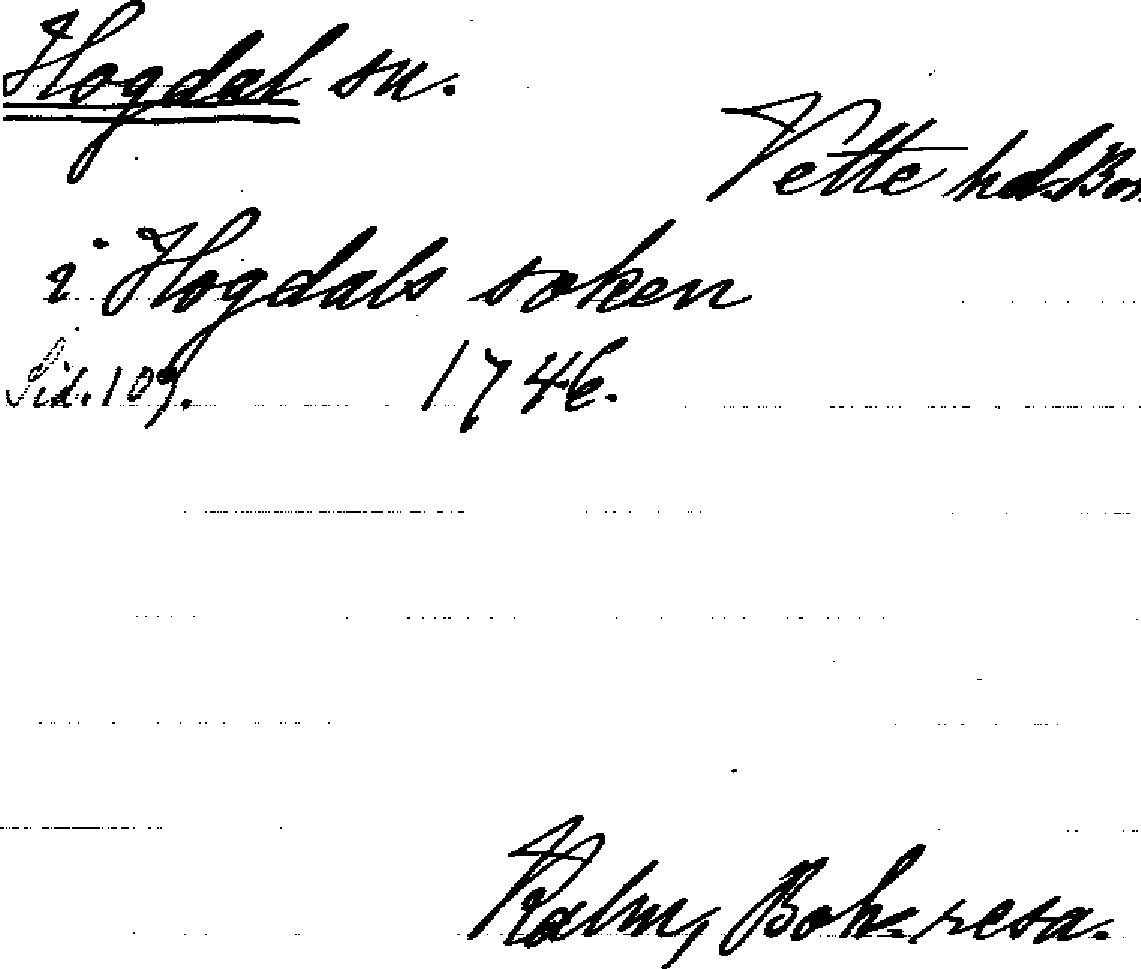 Hogdal sn.
Vette hd. Boh.
i Hogdals soken
Sid. 109. 1746.
Kalm, Boh. resa.